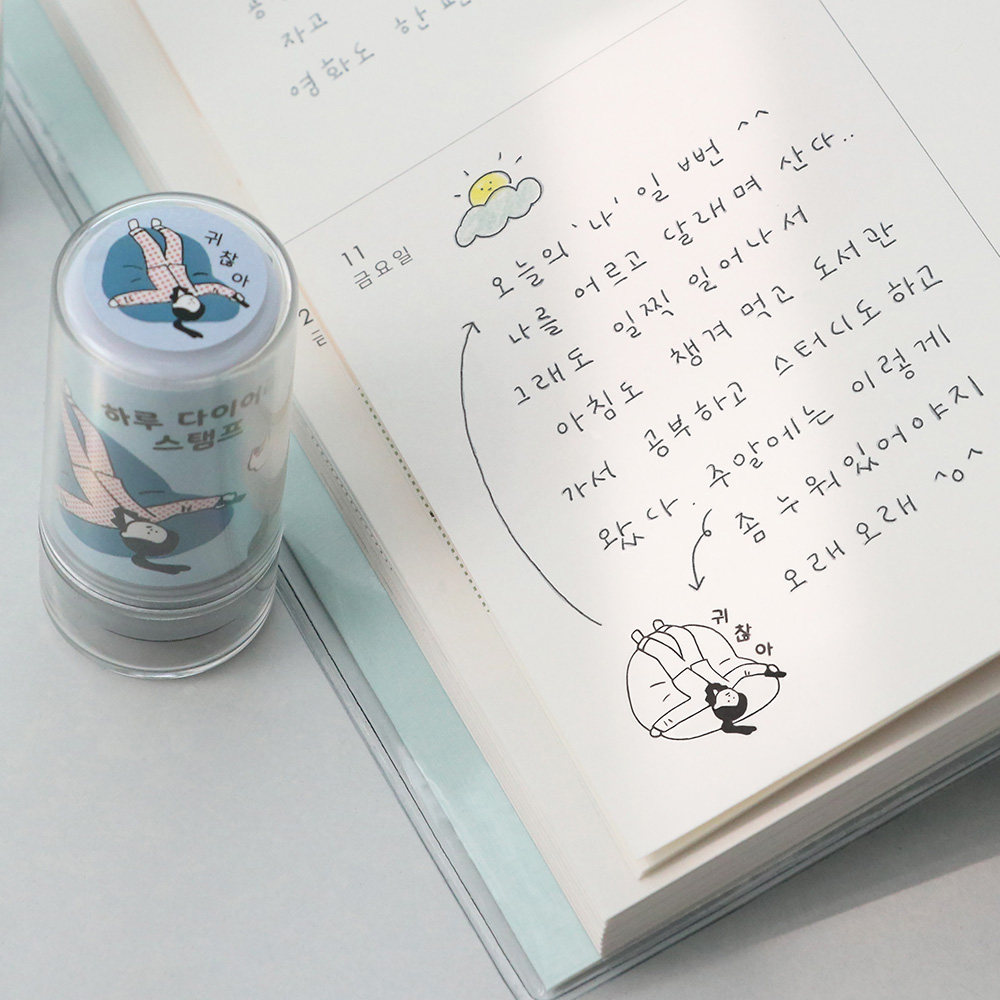 자고
영화도 한 편
11
금요일
오늘의 '나' 일 ㅃ번 ^^
나를 어르고 달래며 산다..
그래도 일찍 일어나서
아침도 챙겨 먹고 도서관
가서 공부하고 스터디도 하고
왔다. 주말에는 이렇게
좀 누워있어야지
오래 오래 ^o^
귀
찮
아
귀
찮
아
하루 다이어리
스탬프
2